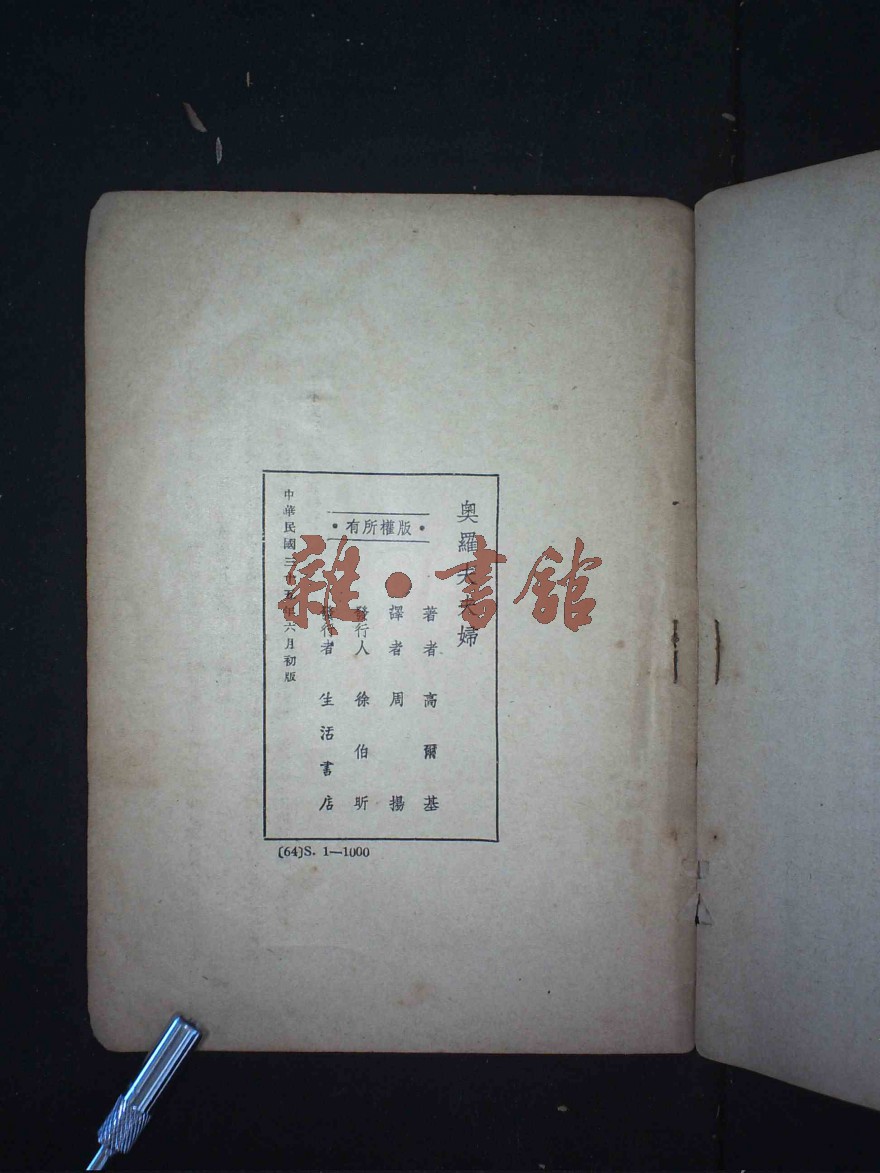 奧羅夫夫婦
•有所權版•
著者高爾基
譯者周揚
發行人徐伯昕
發行者生活書店
中華民國三十五年六月初版
(64)S. 1—1000
雜•書館